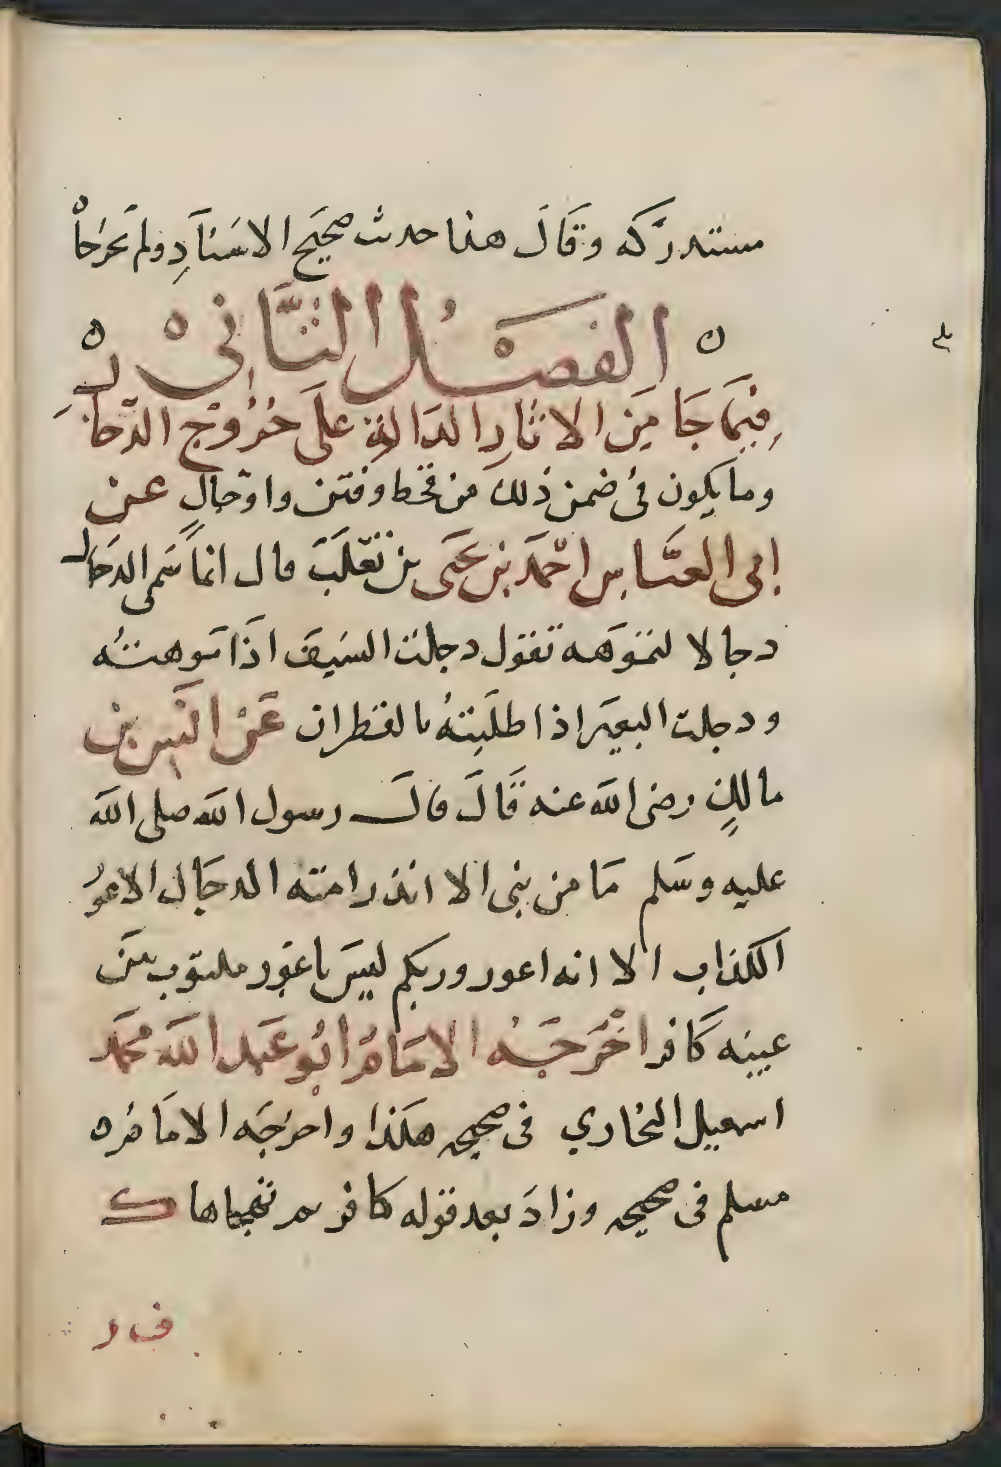 مستدركه وقال هذا حديث صحيح الاسناد ولم يخرجاه
الفصل الثاني
فيما جا من الاثار الدالة على خروج الدجال
وما يكون في ضمن ذلك من قحط وفتن واوجال عن
ابي العباس احمد بن يحيى بن ثعلب قال انما سمي الدجال
دجالا لتموهه تقول دجلت السيف اذا موهته
ودجلت البعير اذا طليته بالقطران عن انس بن
مالك رضي الله عنه قال قال رسول الله صلى الله
عليه وسلم ما من نبي الا انذر امته الدجال الاعور
الكذاب الا انه اعور وربكم ليس باعور مكتوب بين
عينيه كافر اخرجه الامام ابو عبد الله محمد
اسمعيل البخاري في صحيحه هكذا واخرجه الامام
مسلم في صحيحه وزاد بعد قوله كافر ثم تهجاها ك
ف ر